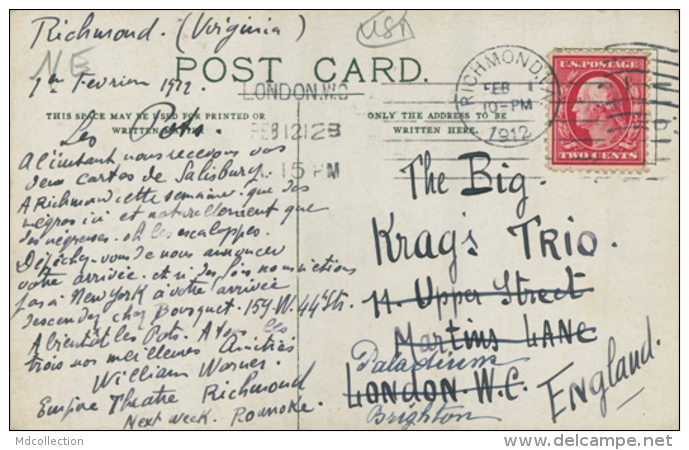 Richmond. (Virginia)
USA
NE
1er Fevrier 1912.
POST CARD.
LONDON. W.C
FEB 12 12
15 PM
RICHMOND, VA.
FEB
10-PM
1912
U.S. POSTAGE
TWO CENTS
THIS SPACE MAY BE USED FOR PRINTED OR
WRITTEN
ONLY THE ADDRESS TO BE
WRITTEN HERE.
Les Pots.
A l'instant nous recevons vos
deux cartes de Salisbury.
A Richmond cette semaine. que des
nègres ici et naturellement que
des négresses. oh les escaloppes.
Dépéchez-vous de nous annoncer
votre arrivée. et si des fois nous n'étions
pas à New York à votre arrivée
descendez chez Bousquet. 159. W. 44th Str.
A bientôt les Pots. A vous les
trois nos meilleures Amitiés
William Warner.
Empire Theatre Richmond
Next week. Roanoke.
The Big.
Krag's TRIO.
11. Upper Street
Martins LANE
Paladium
LONDON. W.C.
Brighton
ENGland.
Mdcollection
www.delcampe.net